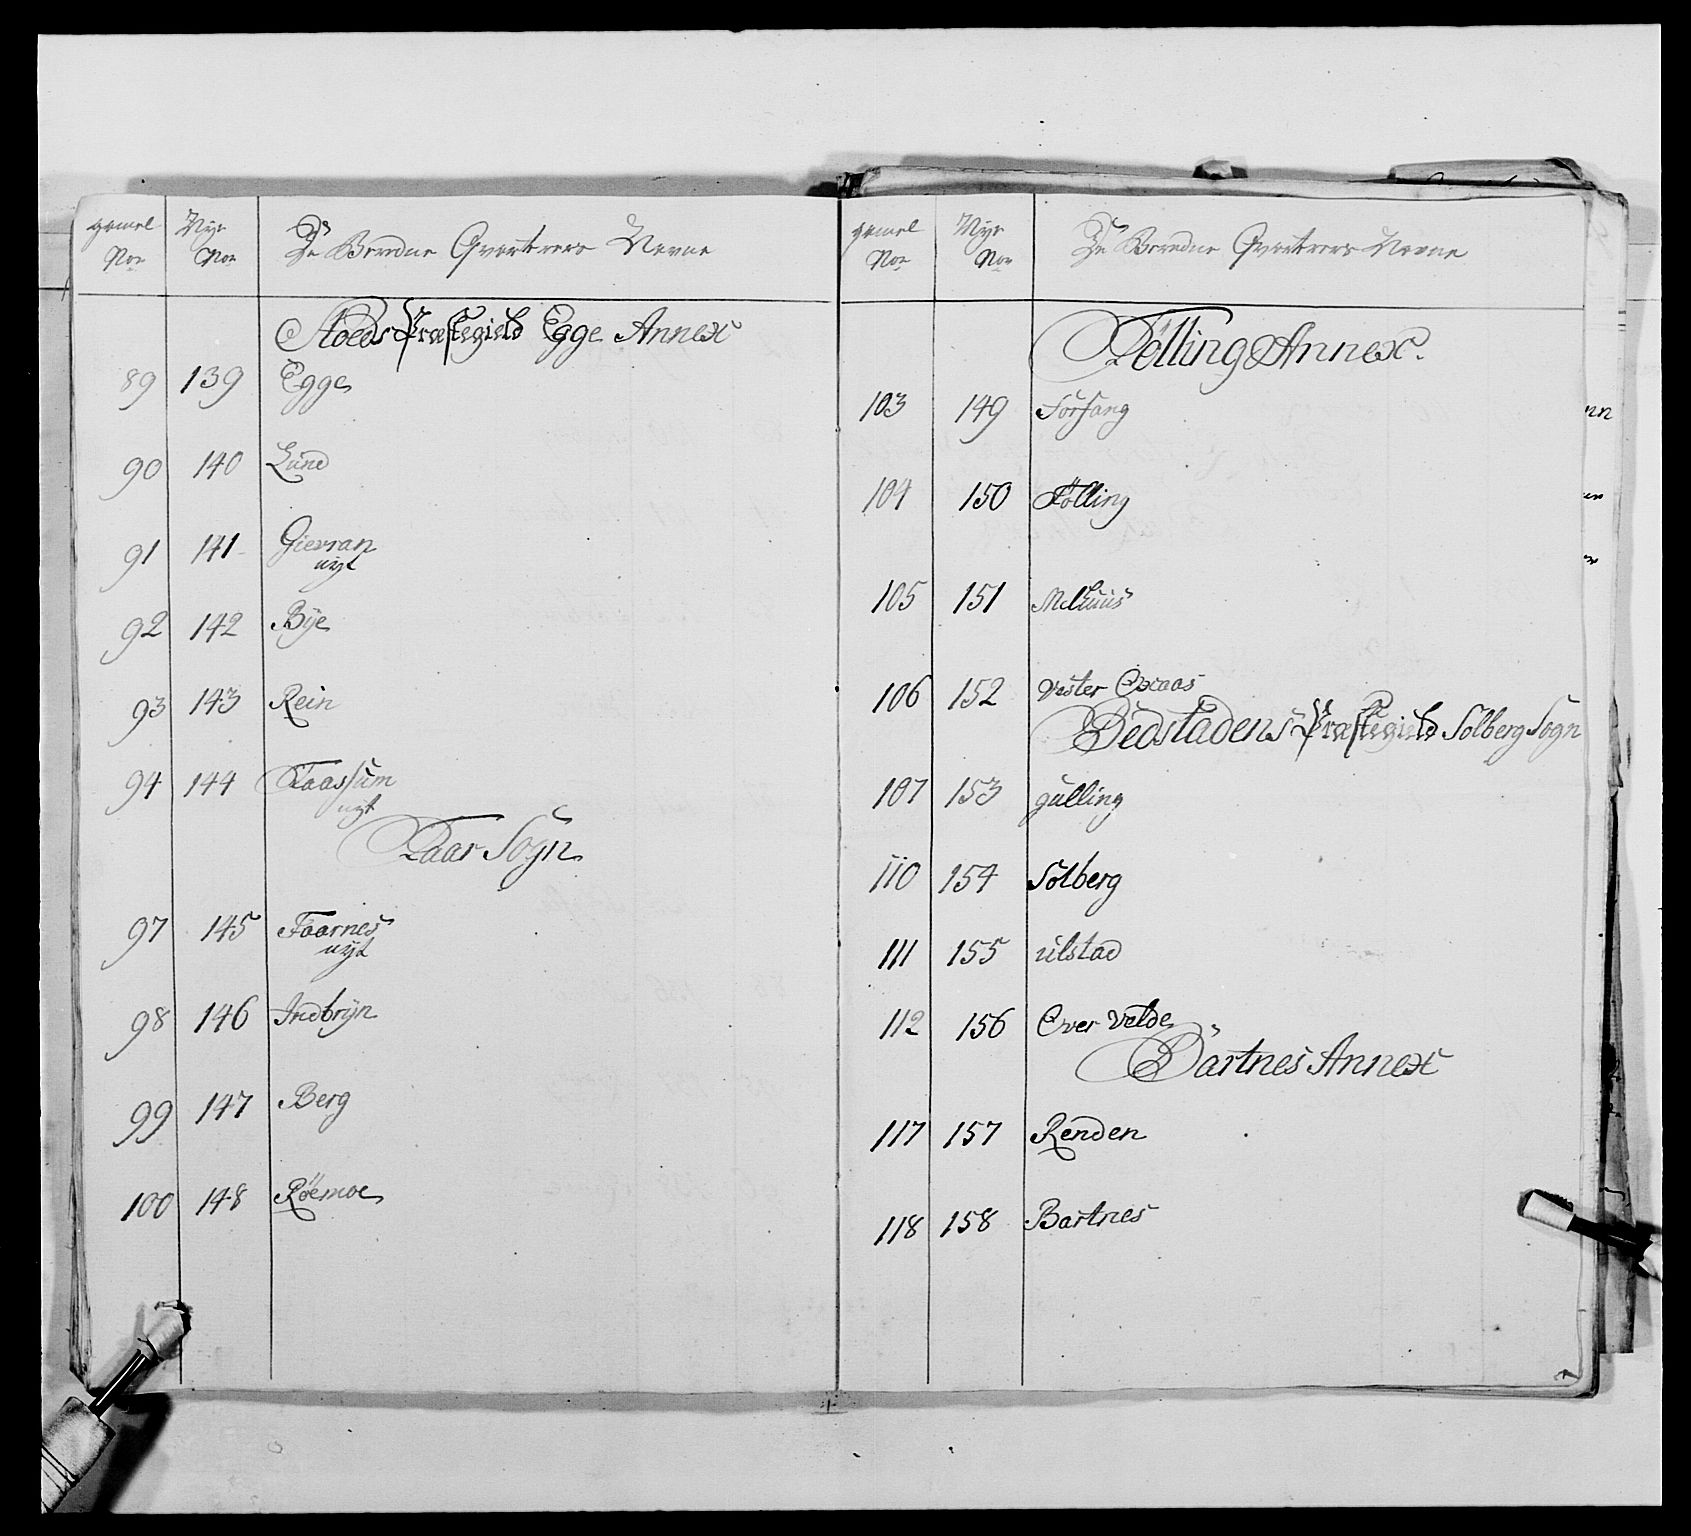 gamel Nye De Beredne Qvarterers Navne
No No
Stoeds Præstegield Egge Annex
89 139 Egge
90 140 Lund
91 141 Gievran
nyt
92 142 Bÿe
93 143 Rein
94 144 Faassum
nyt
Qvaar Sogn
97 145 Faarnes
nyt
98 146 Indbrÿn
99 147 Berg
100 148 Röemoe
gamel Nye De Beredne Qvarterers Navne
No No
Følling Annex.
103 149 Forfang
104 150 Følling
105 151 Melhuus
106 152 Vester Aas
Bedstadens Præstegield Solberg Sogn
107 153 gulling
110 154 Solberg
111 155 ulstad
112 156 Over Velde
Bartnes Annex
117 157 Renden
118 158 Bartnes